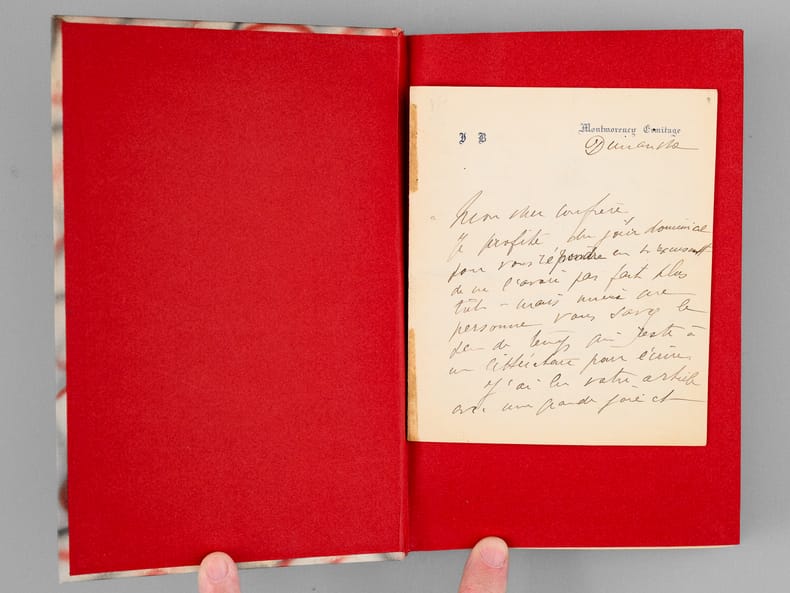 J B
Montmorency Ermitage
Dimanche
Mon cher confrère
Je profite du jour dominical
pour vous répondre en m'excusant
de ne l'avoir pas fait plus
tôt – mais mieux que
personne vous savez le
peu de temps qui reste à
un littérateur pour écrire
J'ai lu votre article
avec une grande joie et